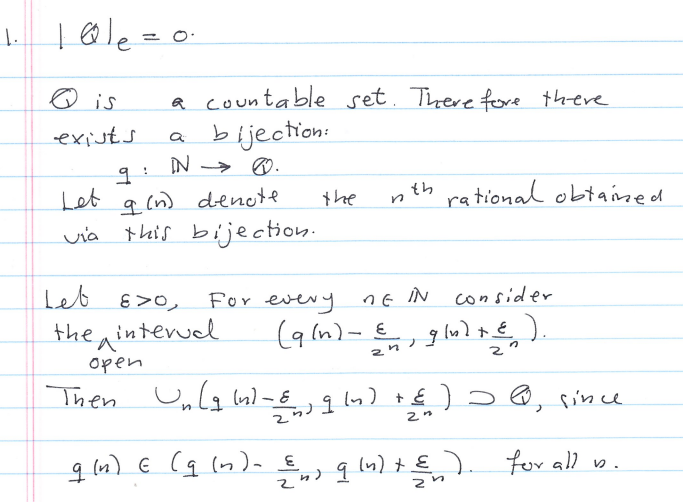 1. |ℚ|e = 0.
ℚ is a countable set. Therefore there
exists a bijection:
q : ℕ → ℚ.
Let q(n) denote the nth rational obtained
via this bijection.
Let ε>0, For every n∈ ℕ consider
the open interval (q(n) - ε/2^n, q(n) + ε/2^n).
Then ∪n(q(n) - ε/2^n, q(n) + ε/2^n) ⊃ ℚ, since
q(n) ∈ (q(n) - ε/2^n, q(n) + ε/2^n). for all n.